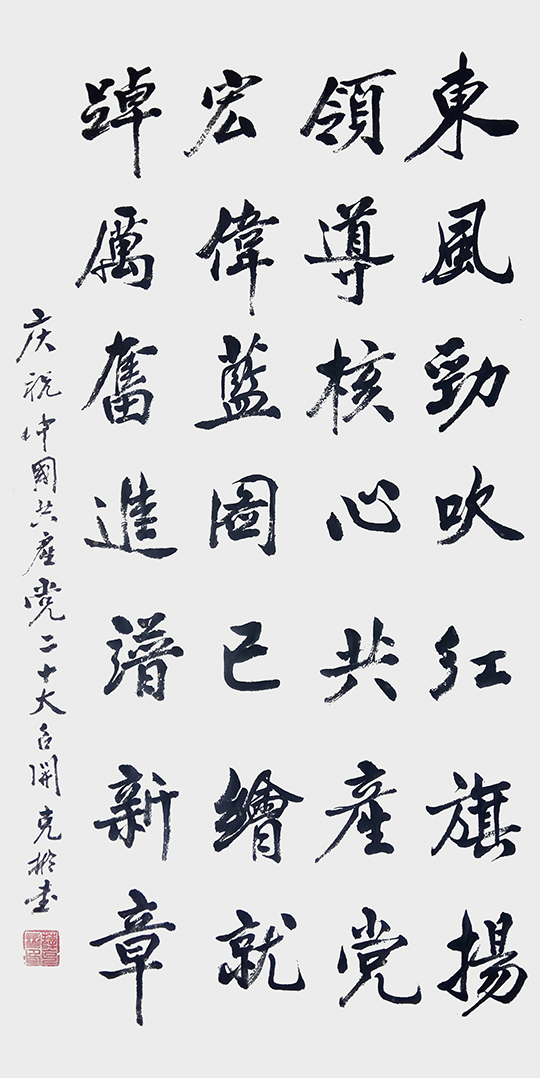 東風勁吹红旗揚
領導核心共產党
宏偉藍圖已繪就
踔厲奮進譜新章
庆祝中國共產党二十大召開 克彬書